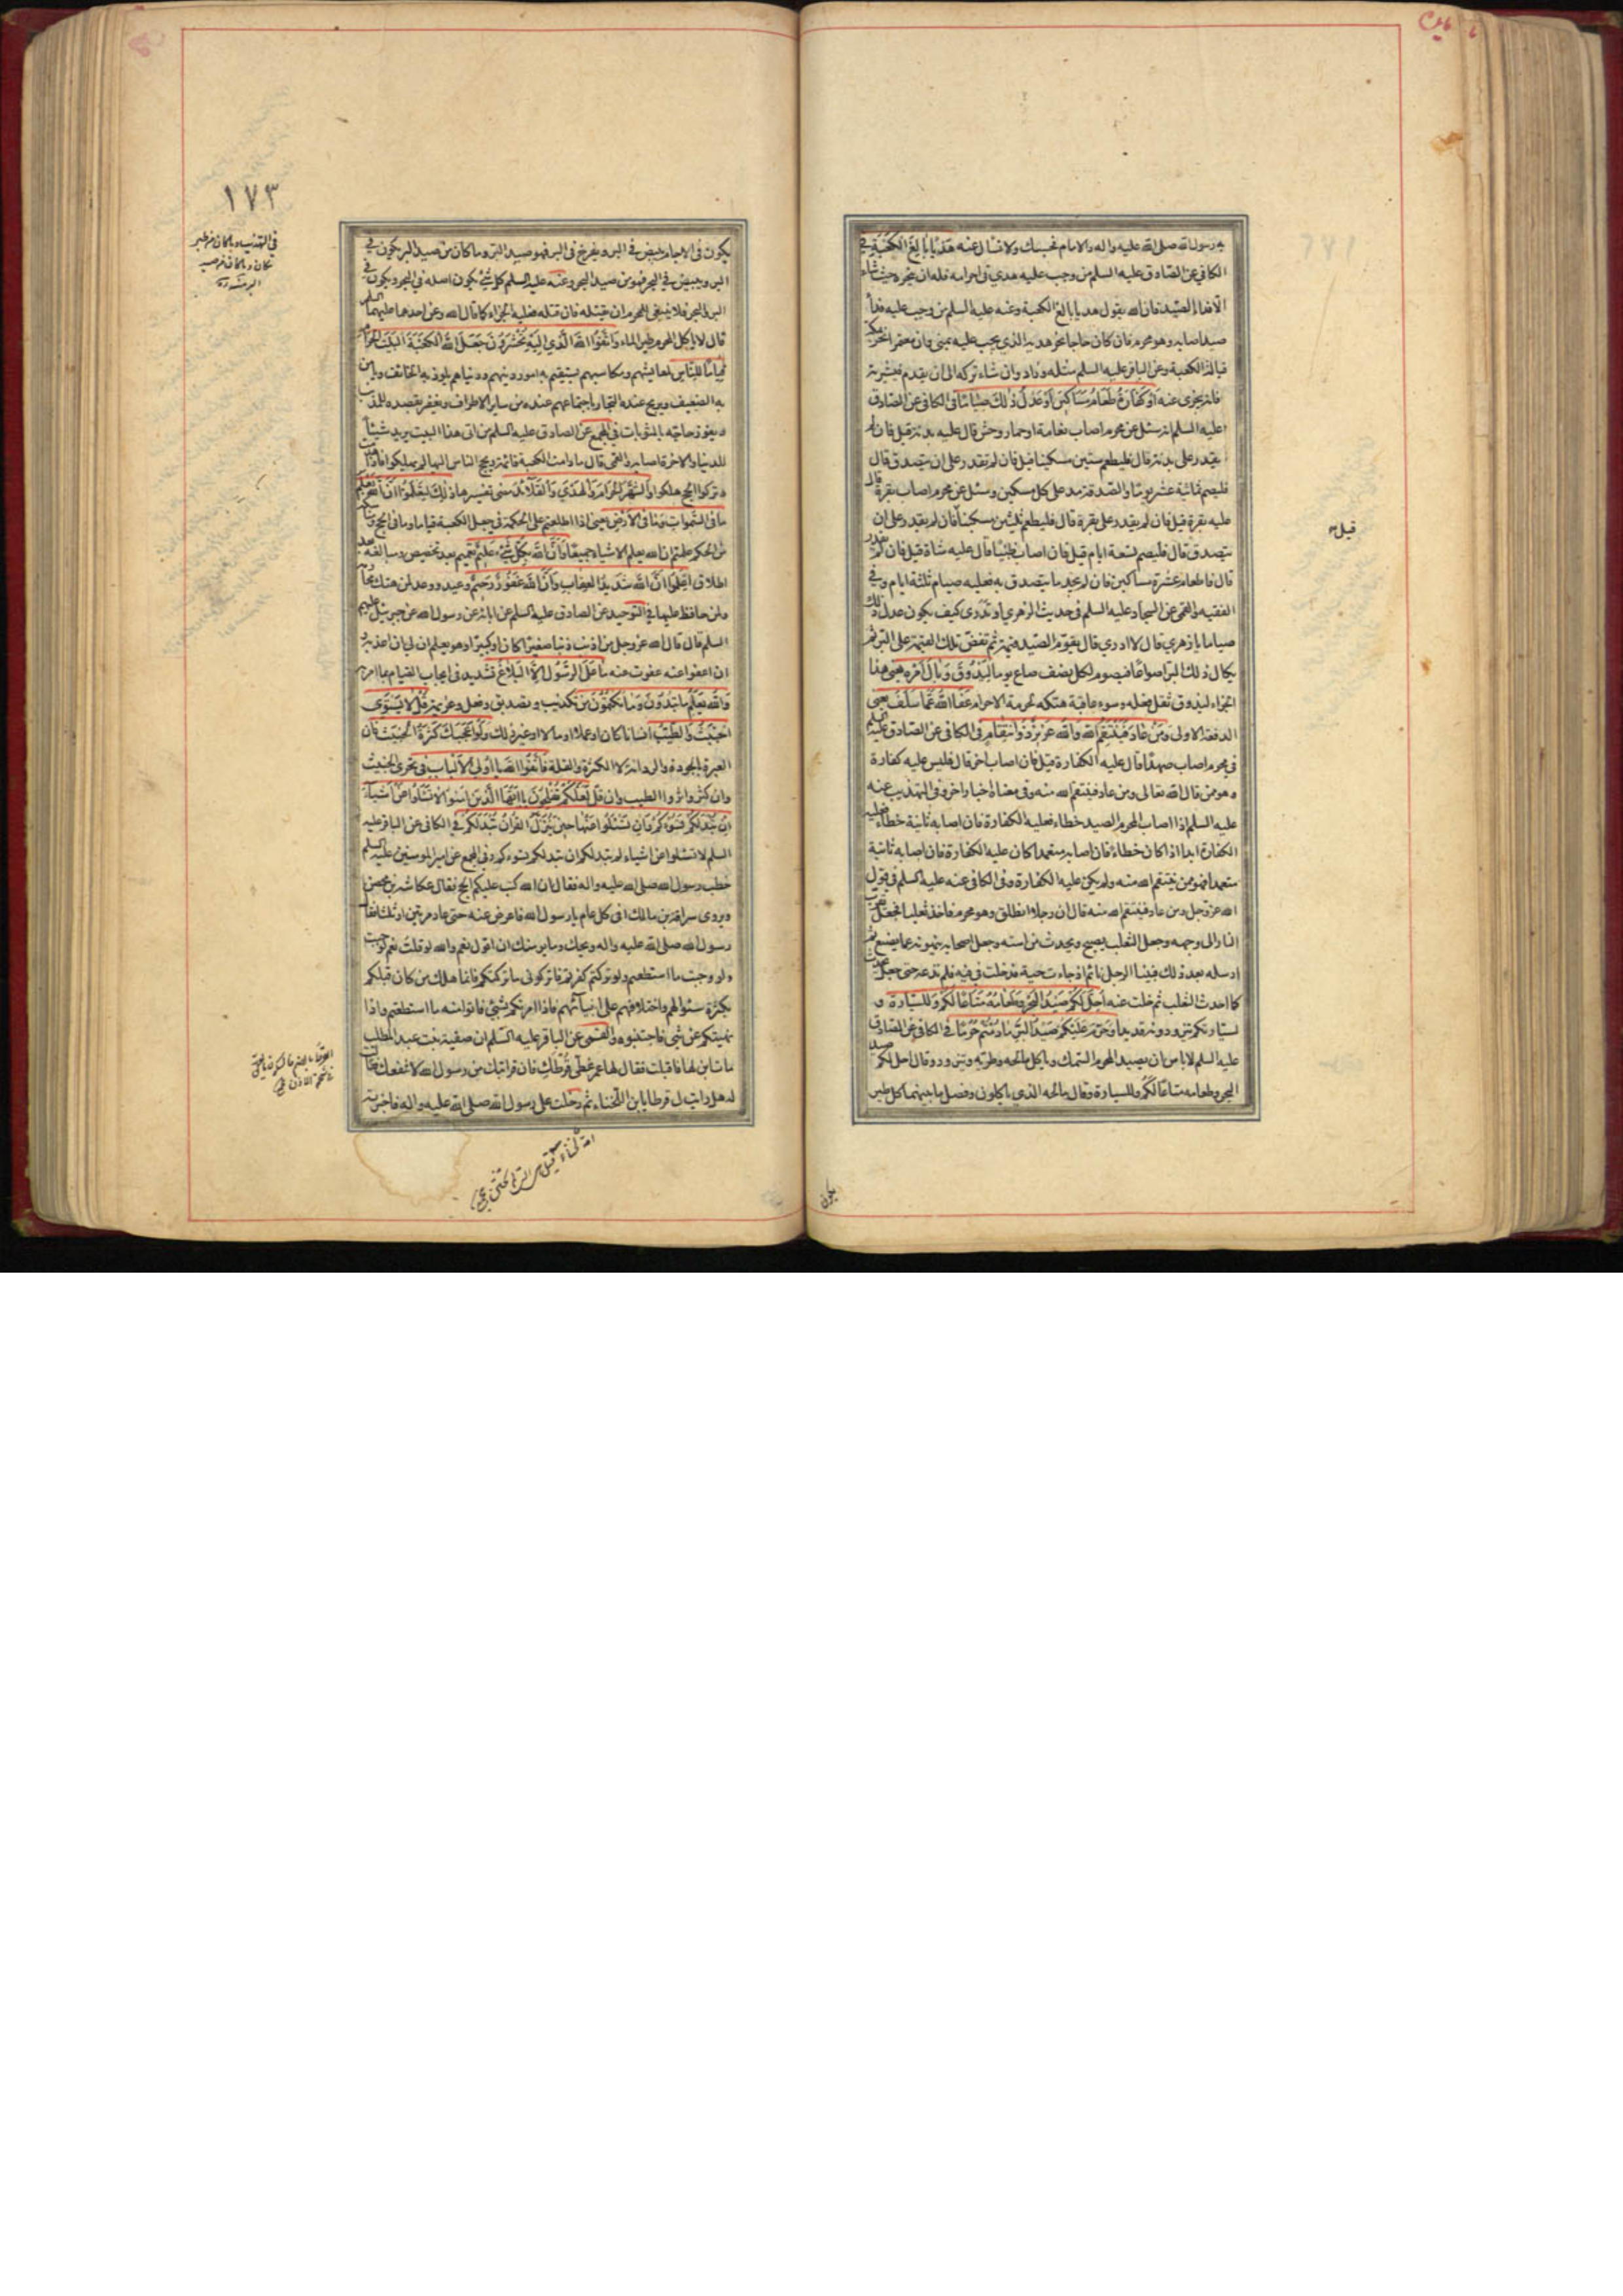 به رسول الله صلى الله عليه واله والامام فحسبك ولا تسال عنه هديا بالغ الكعبة في
الكافي عن الصادق عليه السلم من وجب عليه هدي في احرامه فله ان ينحره حيث شاء
الا فداء الصيد فان الله يقول هديا بالغ الكعبة وعنه عليه السلم من وجب عليه فداء
صيد اصابه وهو محرم فان كان حاجا نحر هديه الذي يجب عليه بمنى وان معتمرا نحر بمكة
قبالة الكعبة وعن الباقر عليه السلم مثله وزاد وان شاء تركه الى ان يقدم فيشتريه
فانه يجزي عنه او كفارة طعام مساكين او عدل ذلك صياما في الكافي عن الصادق
عليه السلم انه سئل عن محرم اصاب نعامة او حمار وحش قال عليه بدنة قيل فان لم
يقدر على بدنة قال فليطعم ستين مسكينا قيل فان لم يقدر على ان يتصدق قال
فليصم ثمانية عشر يوما والصدقة مد على كل مسكين وسئل عن محرم اصاب بقرة قال
عليه بقرة قيل فان لم يقدر على بقرة قال فليطعم ثلثين مسكينا قيل فان لم يقدر على ان
يتصدق قال فليصم تسعة ايام قيل فان اصاب ظبيا قال عليه شاة قيل فان لم يقدر
قال فاطعام عشرة مساكين فان لم يجد ما يتصدق به فعليه صيام ثلثة ايام وفي
الفقيه والقمي عن السجاد عليه السلم في حديث الزهري او تدري كيف يكون عدل ذلك
صياما يا زهري قال لا ادري قال يقوم الصيد قيمة ثم تفض تلك القيمة على البر ثم
يكال ذلك البر اصواعا فيصوم لكل نصف صاع يوما ليذوق وبال امره يعني هذا
الجزاء ليذوق ثقل فعله وسوء عاقبة هتكه لحرمة الاحرام عفا الله عما سلف يعني
الدفعة الاولى ومن عاد فينتقم الله والله عزيز ذو انتقام في الكافي عن الصادق عليه السلم
في محرم اصاب صيدا قال عليه الكفارة قيل فان اصاب اخر قال فليس عليه كفارة
وهو ممن قال الله تعالى ومن عاد فينتقم الله منه وفي معناه اخبار اخر وفي التهذيب عنه
عليه السلم اذا اصاب المحرم الصيد خطاء فعليه الكفارة فان اصابه ثانية خطاء فعليه
الكفارة ابدا اذا كان خطاء فان اصابه متعمدا كان عليه الكفارة فان اصابه ثانية
متعمدا فهو ممن ينتقم الله منه ولم يكن عليه الكفارة وفي الكافي عنه عليه السلم في قول
الله عز وجل ومن عاد فينتقم الله منه قال ان رجلا انطلق وهو محرم فاخذ ثعلبا فجعل يقرب
النار الى وجهه وجعل الثعلب يصيح ويحدث من استه وجعل اصحابه ينهونه عما يصنع ثم
ارسله بعد ذلك فبينا الرجل نائم اذ جاءت حية فدخلت في فيه فلم تدعه حتى جعل يحدث
كما احدث الثعلب ثم خلت عنه احل لكم صيد البحر وطعامه متاعا لكم وللسيارة و
لسيارتكم يتزودونه قديدا وحرم عليكم صيد البر ما دمتم حرما في الكافي عن الصادق
عليه السلم لا باس ان يصيد المحرم السمك وياكل مالحه وطريه ويتزود وقال احل لكم صيد
البحر وطعامه متاعا لكم وللسيارة وقال مالحه الذي ياكلون وفصل ما بينهما كل طير
قيل
يكون
يكون في الاجام يبيض في البر ويفرخ في البر فهو صيد البر وما كان من صيد البر يكون في
البر ويبيض في البحر فهو من صيد البحر وعنه عليه السلم كل شيء يكون اصله في البحر ويكون في
البر والبحر فلا ينبغي للمحرم ان يقتله فان قتله فعليه الجزاء كما قال الله وعن احدهما عليهما السلم
قال لا ياكل المحرم طير الماء واتقوا الله الذي اليه تحشرون جعل الله الكعبة البيت الحرام
قياما للناس لمعايشهم ومكاسبهم يستقيم به امور دينهم ودنياهم يلوذ به الخائف ويامن
به الضعيف ويربح عنده التجار باجتماعهم عنده من ساير الاطراف ويغفر بقصده للمذنب
ويفوز حاجه بالمثوبات في المجمع عن الصادق عليه السلم من اتى هذا البيت يريد شيئا
للدنيا والاخرة اصابه والقمي قال ما دامت الكعبة قائمة ويحج الناس اليها لم يهلكوا فاذا هدمت
وتركوا الحج هلكوا والشهر الحرام والهدي والقلائد مضى تفسيرها ذلك لتعلموا ان الله يعلم
ما في السموات وما في الارض يعني اذا اطلعتم على الحكمة في جعل الكعبة قياما وما في الحج ومناسكه
من الحكم علمتم ان الله يعلم الاشياء جميعا وان الله بكل شيء عليم تعميم بعد تخصيص ومبالغة بعد
اطلاق اعلموا ان الله شديد العقاب وان الله غفور رحيم وعيد ووعد لمن هتك محارمه
ولمن حافظ عليها في التوحيد عن الصادق عليه السلم عن ابائه عن رسول الله عن جبرئيل عليهم
السلم قال قال الله عز وجل من اذنب ذنبا صغيرا كان او كبيرا وهو يعلم ان لي ان اعذبه و
ان اعفو عنه عفوت عنه ما على الرسول الا البلاغ تشديد في ايجاب القيام بما امر به
والله يعلم ما تبدون وما تكتمون من تكذيب وتصديق وفعل وعزيمة قل لا يستوي
الخبيث والطيب انسانا كان او عملا او مالا او غير ذلك ولو اعجبك كثرة الخبيث فان
العبرة بالجودة والرداءة لا الكثرة والقلة فاتقوا الله يا اولي الالباب في تحري الخبيث
وان كثر واثروا الطيب وان قل لعلكم تفلحون يا ايها الذين امنوا لا تسئلوا عن اشياء
ان تبد لكم تسؤكم وان تسئلوا عنها حين ينزل القران تبد لكم في الكافي عن الباقر عليه
السلم لا تسئلوا عن اشياء لم تبد لكم ان تبد لكم تسوءكم وفي المجمع عن امير المومنين عليه السلم
خطب رسول الله صلى الله عليه واله فقال ان الله كتب عليكم الحج فقال عكاشة بن محصن
ويروى سراقة بن مالك افي كل عام يا رسول الله فاعرض عنه حتى عاد مرتين او ثلثا فقال
رسول الله صلى الله عليه واله ويحك وما يومنك ان اقول نعم والله لو قلت نعم لوجبت
ولو وجبت ما استطعتم ولو تركتم كفرتم فاتركوني ما تركتكم فانما هلك من كان قبلكم
بكثرة سئوالهم واختلافهم على انبيائهم فاذا امرتكم بشيء فاتوا منه ما استطعتم واذا
نهيتكم عن شيء فاجتنبوه والقمي عن الباقر عليه السلم ان صفية بنت عبد المطلب
مات ابن لها فاقبلت فقال لها عمر غطي قرطك فان قرابتك من رسول الله لا تنفعك فقالت
له هل رايت لي قرطا يا ابن اللخناء ثم دخلت على رسول الله صلى الله عليه واله فاخبرته
١٧٣